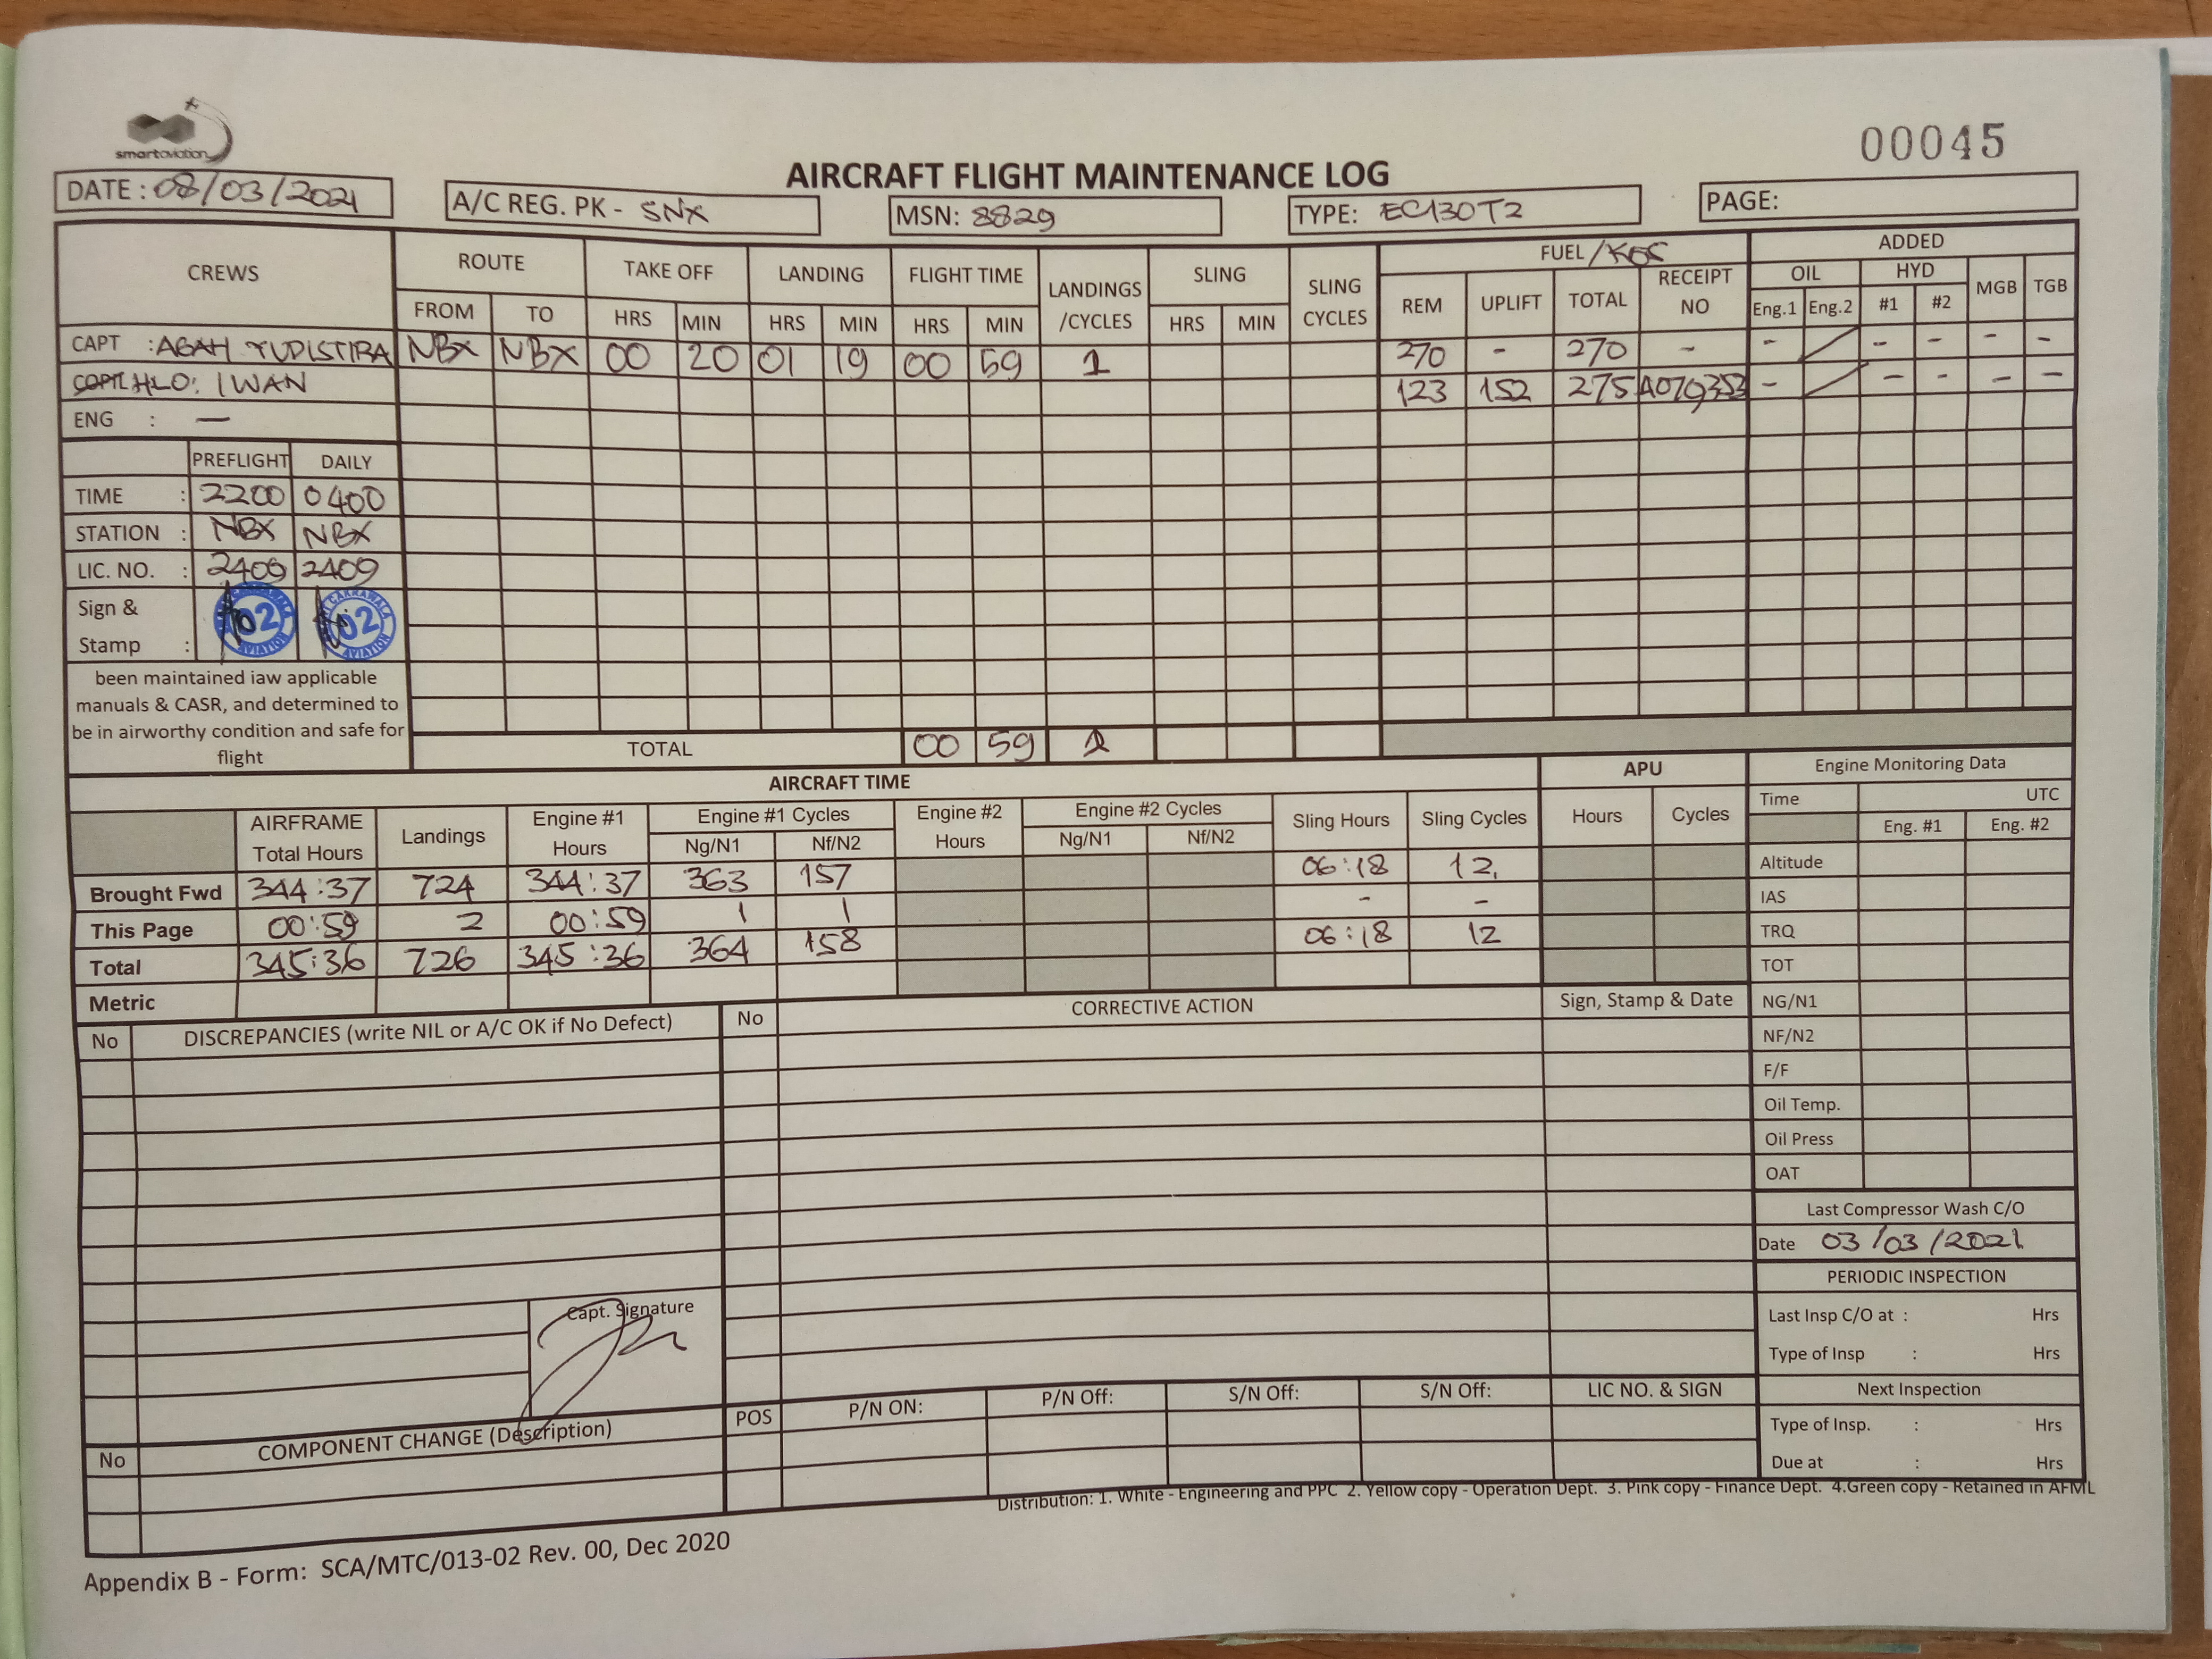 smartaviation
00045
AIRCRAFT FLIGHT MAINTENANCE LOG
DATE: 08/03/2021
A/C REG. PK - SNX
MSN: 8829
TYPE: EC130T2
PAGE:
CREWS
ROUTE
TAKE OFF
LANDING
FLIGHT TIME
LANDINGS /CYCLES
SLING
SLING CYCLES
FUEL /KGS
ADDED
FROM TO HRS MIN HRS MIN HRS MIN HRS MIN
REM UPLIFT TOTAL RECEIPT NO
OIL HYD MGB TGB
Eng.1 Eng.2 #1 #2
CAPT : AGAH YUDISTIRA NBX NBX 00 20 01 19 00 59 1 270 - 270 - - - - - -
COPIL HLO: IWAN 123 152 275 A079353 - - - - -
ENG : —
PREFLIGHT DAILY
TIME : 2200 0400
STATION : NBX NBX
LIC. NO. : 2409 2409
Sign &
Stamp :
02 AVIATION
CAKRAWALA 02 AVIATION
been maintained iaw applicable
manuals & CASR, and determined to
be in airworthy condition and safe for
flight
TOTAL 00 59 2
AIRCRAFT TIME
APU
Engine Monitoring Data
AIRFRAME Total Hours
Landings
Engine #1 Hours
Engine #1 Cycles
Ng/N1 Nf/N2
Engine #2 Hours
Engine #2 Cycles
Ng/N1 Nf/N2
Sling Hours
Sling Cycles
Hours Cycles
Time UTC
Eng. #1 Eng. #2
Brought Fwd 344:37 724 344:37 363 157 06:18 12
This Page 00:59 2 00:59 1 1 - -
Total 345:36 726 345:36 364 158 06:18 12
Metric
Altitude
IAS
TRQ
TOT
NG/N1
NF/N2
F/F
Oil Temp.
Oil Press
OAT
No DISCREPANCIES (write NIL or A/C OK if No Defect)
No CORRECTIVE ACTION Sign, Stamp & Date
Last Compressor Wash C/O
Date 03/03/2021
PERIODIC INSPECTION
Last Insp C/O at : Hrs
Type of Insp : Hrs
Next Inspection
Type of Insp. : Hrs
Due at : Hrs
Capt. Signature
No COMPONENT CHANGE (Description)
POS P/N ON: P/N Off: S/N Off: S/N Off: LIC NO. & SIGN
Distribution: 1. White - Engineering and PPC 2. Yellow copy - Operation Dept. 3. Pink copy - Finance Dept. 4.Green copy - Retained in AFML
Appendix B - Form: SCA/MTC/013-02 Rev. 00, Dec 2020